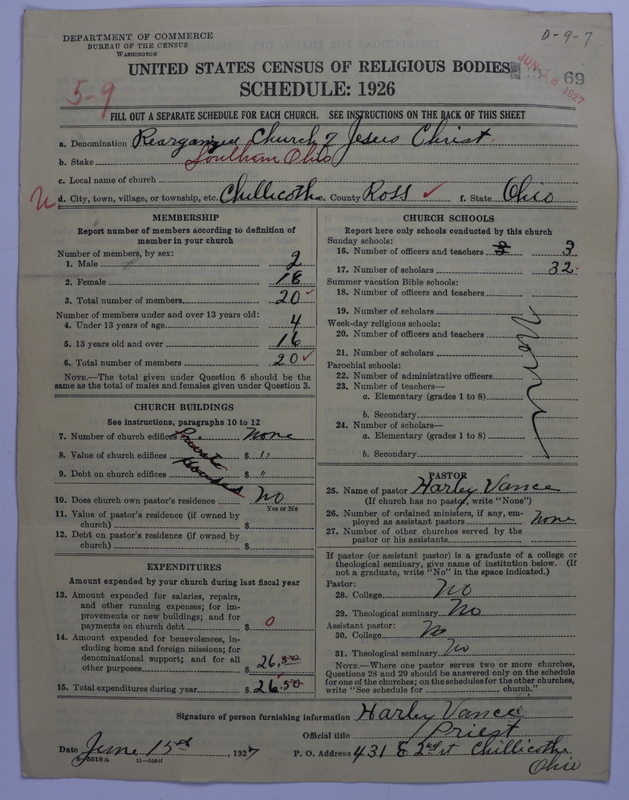 DEPARTMENT OF COMMERCE
BUREAU OF THE CENSUS
WASHINGTON
0-9-7
UNITED STATES CENSUS OF RELIGIOUS BODIES
SCHEDULE: 1926
JUN 18 1927
69
5-9
FILL OUT A SEPARATE SCHEDULE FOR EACH CHURCH. SEE INSTRUCTIONS ON THE BACK OF THIS SHEET
a. Denomination Rearganized Church of Jesus Christ
b. Stake Southern Ohio
c. Local name of church
d. City, town, village, or township, etc. Chillicothe County Ross ✓ f. State Ohio
MEMBERSHIP
Report number of members according to definition of
member in your church
Number of members, by sex:
1. Male 2
2. Female 18
3. Total number of members 20 ✓
Number of members under and over 13 years old:
4. Under 13 years of age 4
5. 13 years old and over 16
6. Total number of members 20 ✓
NOTE.—The total given under Question 6 should be the
same as the total of males and females given under Question 3.
CHURCH BUILDINGS
See instructions, paragraphs 10 to 12
7. Number of church edifices None
8. Value of church edifices $ "
9. Debt on church edifices $ "
Private
Houses
10. Does church own pastor's residence No
Yes or No
11. Value of pastor's residence (if owned by
church) $
12. Debt on pastor's residence (if owned by
church) $
EXPENDITURES
Amount expended by your church during last fiscal year
13. Amount expended for salaries, repairs,
and other running expenses; for im-
provements or new buildings; and for
payments on church debt $ 0
14. Amount expended for benevolences, in-
cluding home and foreign missions; for
denominational support; and for all
other purposes $ 26.50
15. Total expenditures during year $ 26.50
CHURCH SCHOOLS
Report here only schools conducted by this church
Sunday schools:
16. Number of officers and teachers 3
17. Number of scholars 32
Summer vacation Bible schools:
18. Number of officers and teachers
19. Number of scholars
Week-day religious schools:
20. Number of officers and teachers
21. Number of scholars
Parochial schools:
22. Number of administrative officers
23. Number of teachers—
a. Elementary (grades 1 to 8)
b. Secondary
24. Number of scholars—
a. Elementary (grades 1 to 8)
b. Secondary
None
PASTOR
25. Name of pastor Harley Vance
(If church has no pastor, write "None")
26. Number of ordained ministers, if any, em-
ployed as assistant pastors None
27. Number of other churches served by the
pastor or his assistants
If pastor (or assistant pastor) is a graduate of a college or
theological seminary, give name of institution below. (If
not a graduate, write "No" in the space indicated.)
Pastor:
28. College No
29. Theological seminary No
Assistant pastor:
30. College No
31. Theological seminary No
NOTE.—Where one pastor serves two or more churches,
Questions 28 and 29 should be answered only on the schedule
for one of the churches; on the schedules for the other churches,
write "See schedule for church."
Signature of person furnishing information Harley Vance
Official title Priest
Date June 15th, 1927 P. O. Address 431 E 2nd st Chillicothe
Ohio